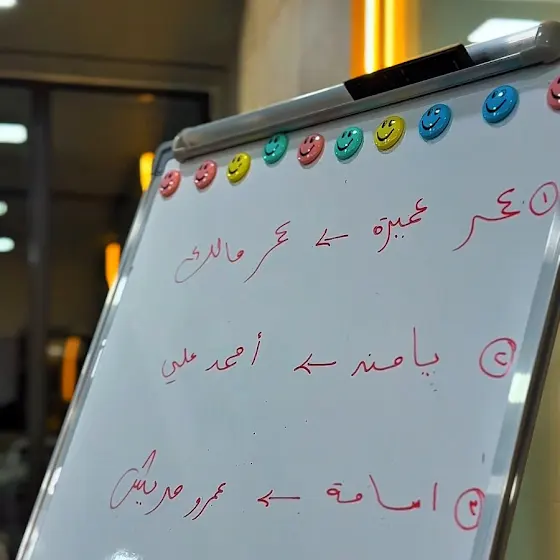 ١ عمر عميرة ← عمر مالك
٢ يامنه ← أحمد علي
٣ اسامة ← عمرو